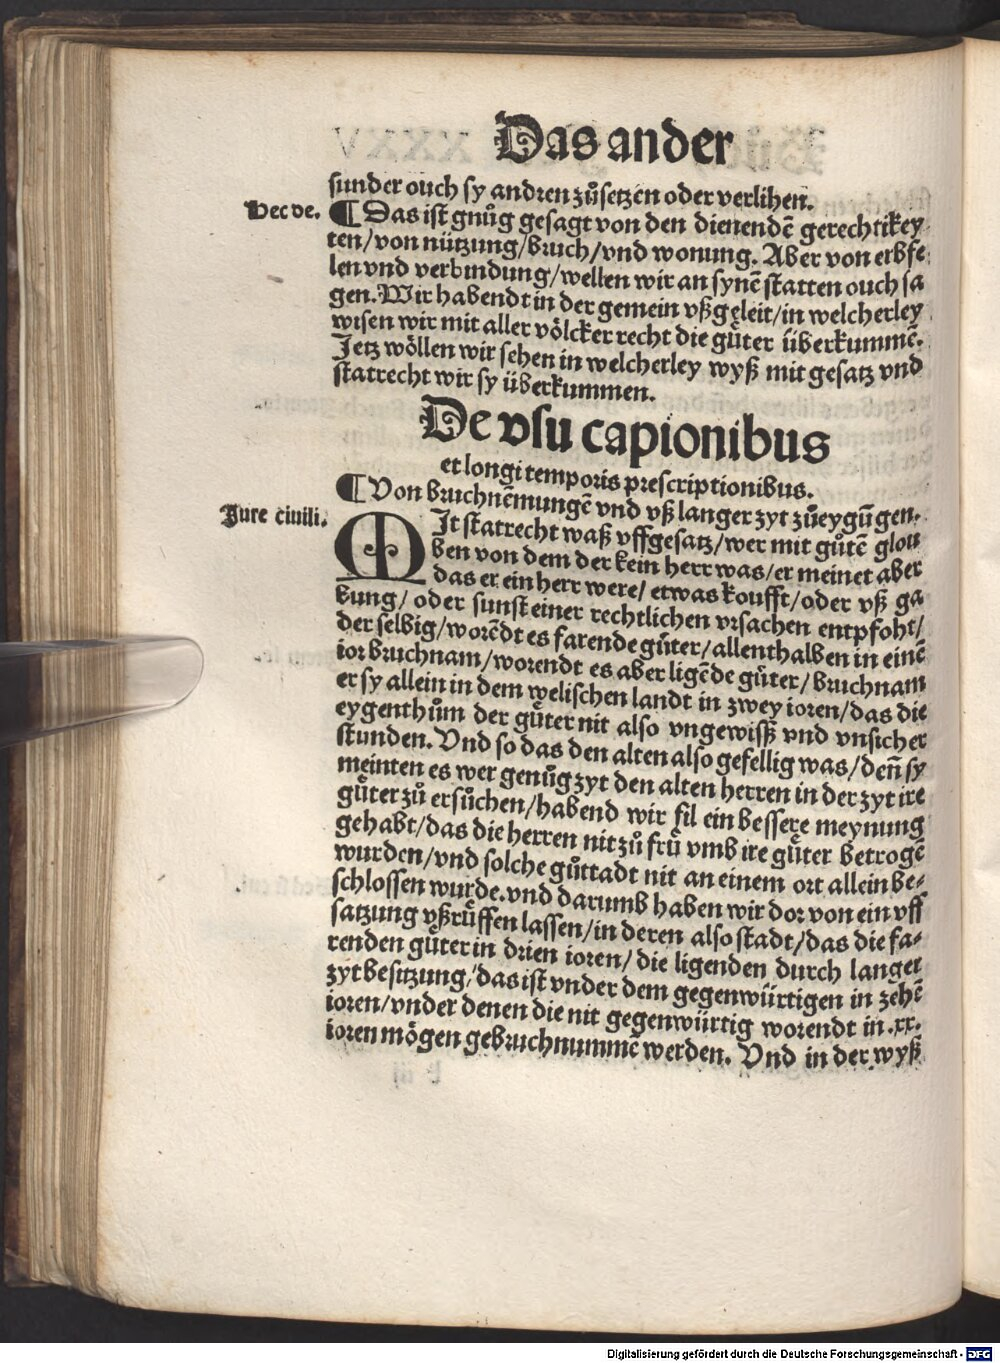 Das ander
sunder ouch sy andren zůsetzen oder verlihen.
Hec de. ¶ Das ist gnůg gesagt von den dienendē gerechtikey
ten/von nützung/bruch/vnd wonung. Aber von erbfe
len vnd verbindung/wellen wir an synē statten ouch sa
gen. Wir habendt in der gemein vßgeleit/in welcherley
wisen wir mit aller völcker recht die gůter überkummē.
Jetz wöllen wir sehen in welcherley wyß mit gesatz vnd
statrecht wir sy überkummen.
De vsu capionibus
et longi temporis prescriptionibus.
¶ Von bruchnēmungē vnd vß langer zyt zůeygūgen.
Jure ciuili. MJt statrecht waß vffgesatz/wer mit gůtē glou
ben von dem der kein herr was/er meinet aber
das er ein herr were/ etwas koufft/oder vß ga
bung/ oder sunst einer rechtlichen vrsachen entpfoht/
der selbig/worēdt es farende gůter/allenthalben in einē
ior bruchnam/worendt es aber ligēde gůter/ bruchnam
er sy allein in dem welischen landt in zwey ioren/das die
eygenthům der gůter nit also vngewiß vnd vnsicher
stunden. Vnd so das den alten also gefellig was/deñ sy
meinten es wer genůg zyt den alten herren in der zyt ire
gůter zů ersůchen/habend wir fil ein bessere meynung
gehabt/das die herren nit zů frů vmb ire gůter betrogē
wurden/vnd solche gůttadt nit an einem ort allein be-
schlossen wurde. vnd darumb haben wir dor von ein vff
satzung vßrůffen lassen/in deren also stadt/das die fa-
renden gůter in drien ioren/ die ligenden durch langer
zyt besitzung/das ist vnder dem gegenwürtigen in zehē
ioren/vnder denen die nit gegenwürtig worendt in .xx.
ioren mögen gebruchnummē werden. Vnd in der wyß
Digitalisierung gefördert durch die Deutsche Forschungsgemeinschaft - DFG